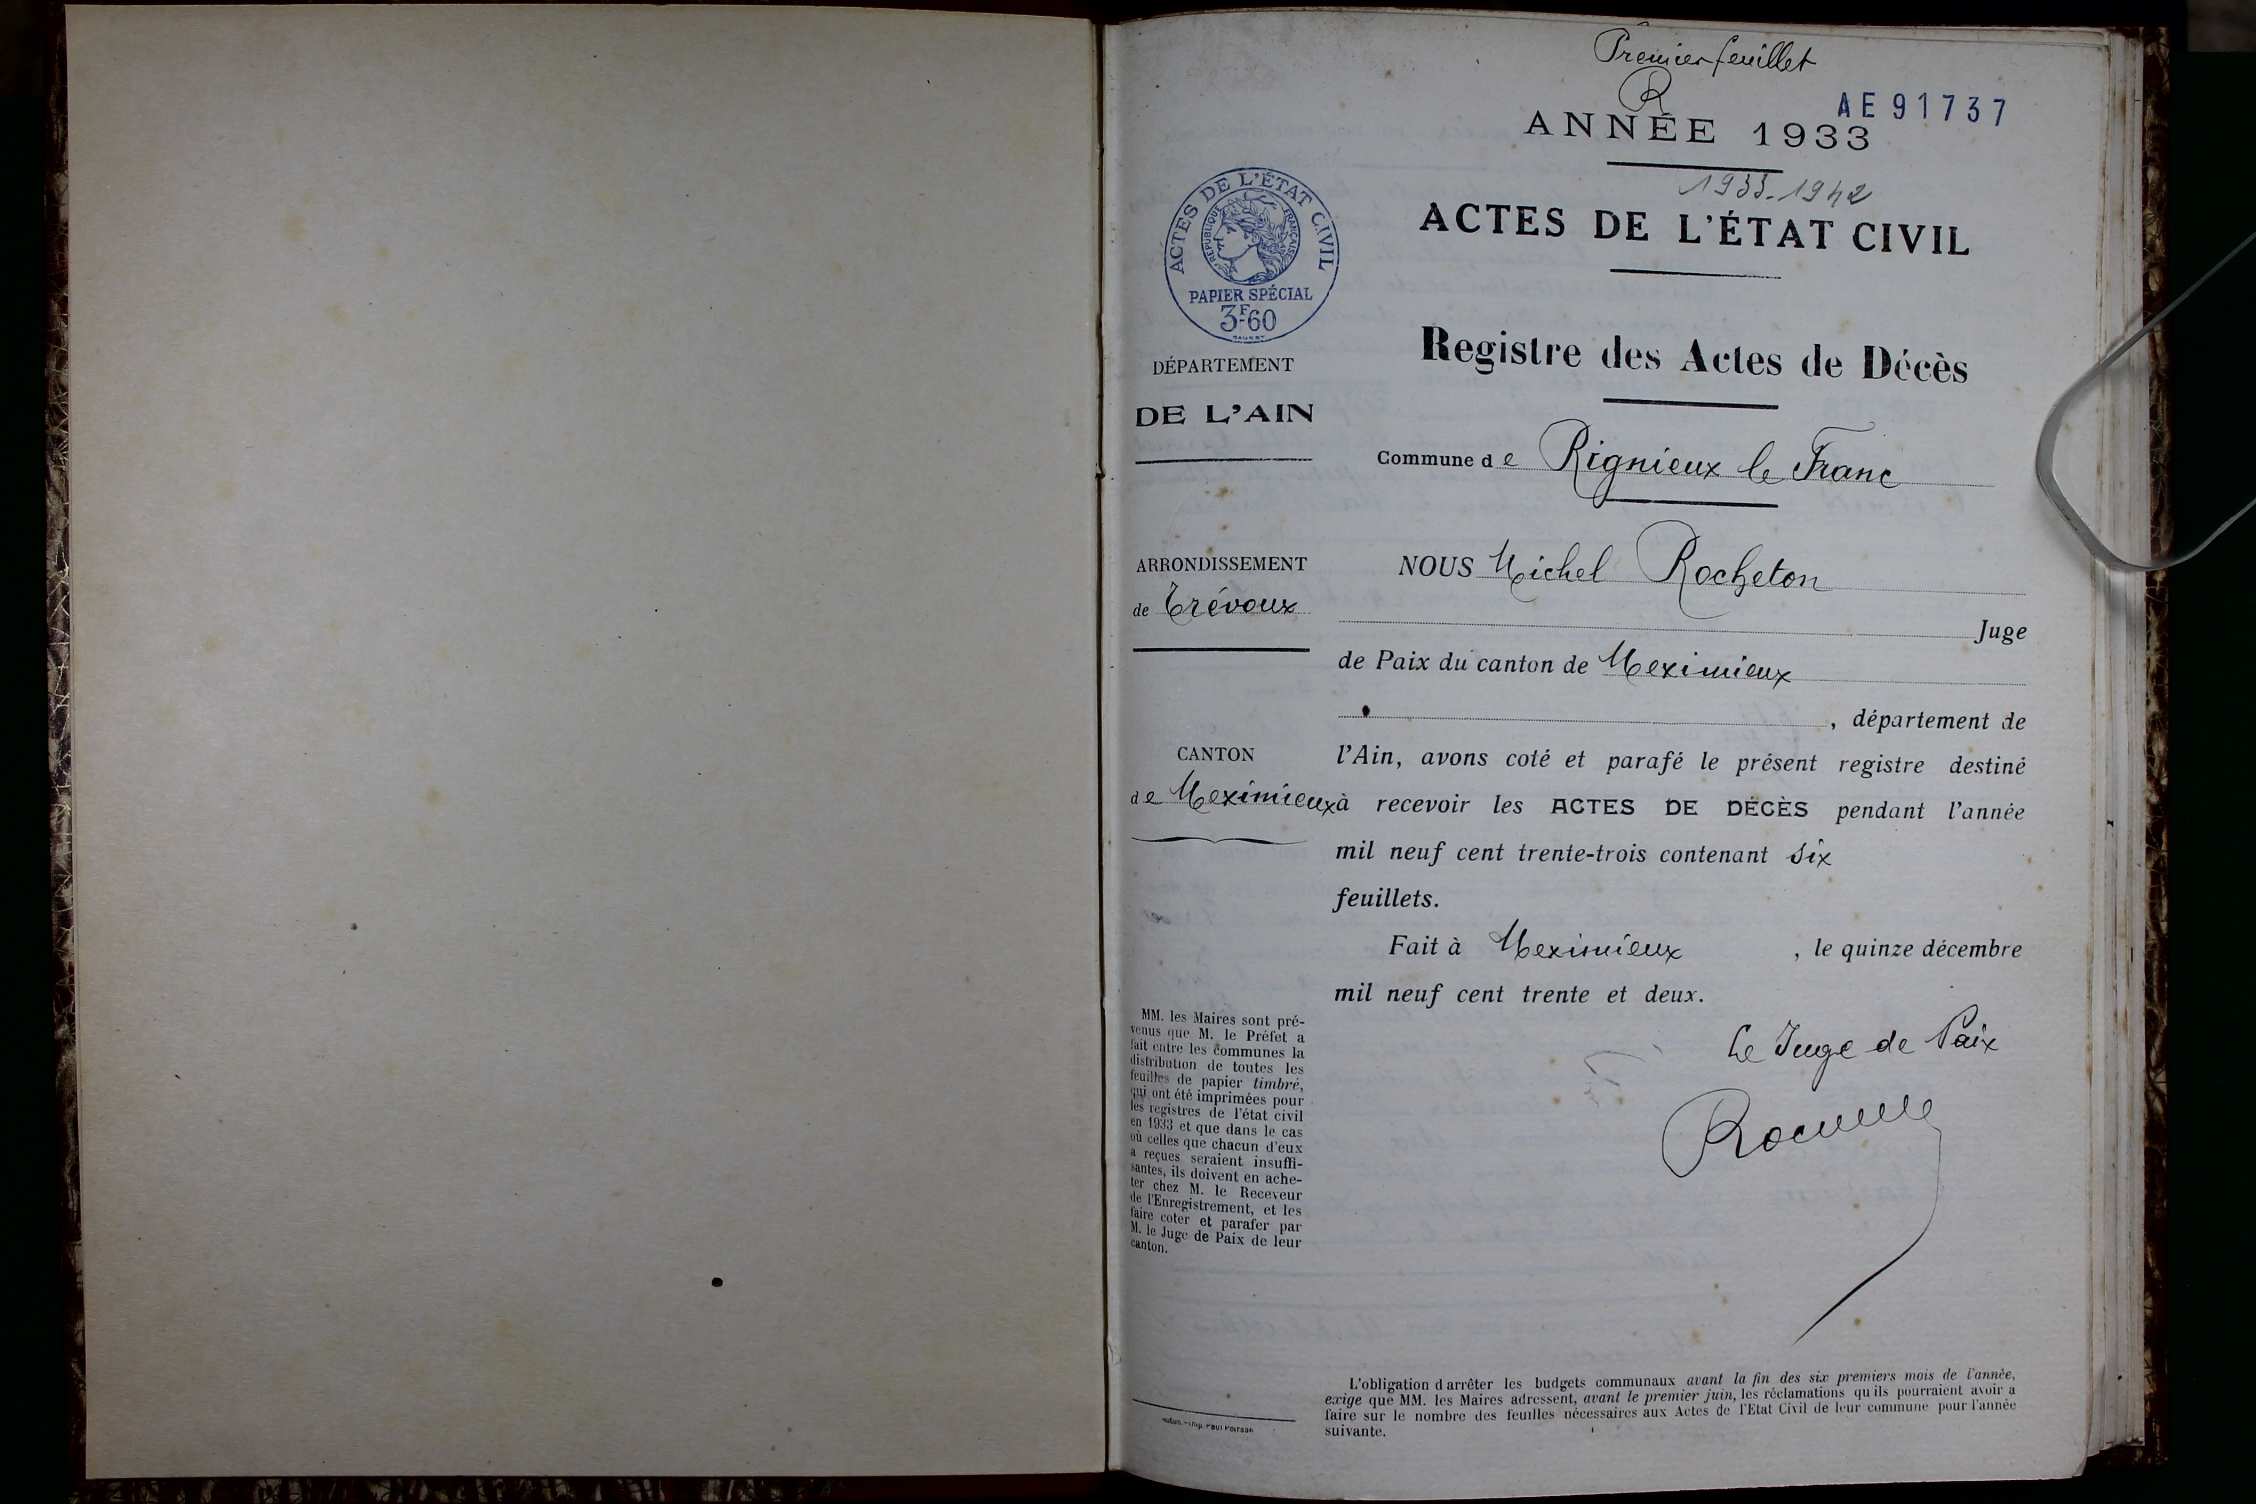 Premier feuillet
R
AE 91737
ANNÉE 1933
1933-1942
ACTES DE L'ÉTAT CIVIL
Registre des Actes de Décès
Commune de Rignieux le Franc
ACTES DE L'ÉTAT CIVIL
RÉPUBLIQUE FRANÇAISE
PAPIER SPÉCIAL
3F.60
DÉPARTEMENT
DE L'AIN
ARRONDISSEMENT
de Trévoux
CANTON
de Meximieux
MM. les Maires sont pré-
venus que M. le Préfet a
fait entre les communes la
distribution de toutes les
feuilles de papier timbré,
qui ont été imprimées pour
les registres de l'état civil
en 1933 et que dans le cas
où celles que chacun d'eux
a reçues seraient insuffi-
santes, ils doivent en ache-
ter chez M. le Receveur
de l'Enregistrement, et les
faire coter et parafer par
M. le Juge de Paix de leur
canton.
NOUS Michel Rocheton
Juge
de Paix du canton de Meximieux
, département de
l'Ain, avons coté et parafé le présent registre destiné
à recevoir les ACTES DE DÉCÈS pendant l'année
mil neuf cent trente-trois contenant six
feuillets.
Fait à Meximieux , le quinze décembre
mil neuf cent trente et deux.
Le Juge de Paix
L'obligation d'arrêter les budgets communaux avant la fin des six premiers mois de l'année,
exige que MM. les Maires adressent, avant le premier juin, les réclamations qu'ils pourraient avoir à
faire sur le nombre des feuilles nécessaires aux Actes de l'Etat Civil de leur commune pour l'année
suivante.